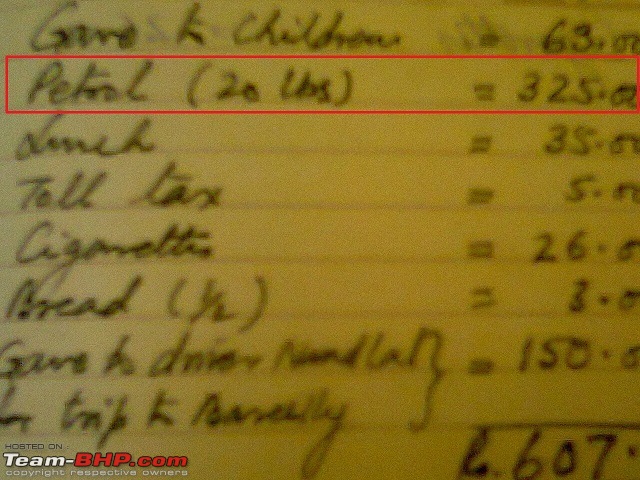 Gave to Children = 63.00
Petrol (20 Ltrs) = 325.00
Lunch = 35.00
Toll tax = 5.00
Cigarettes = 26.0
Bread (1/2) = 3.0
Gave to driver = 150.0
for trip to Bareilly
607.
HOSTED ON :
Team-BHP.com
copyright respective owners